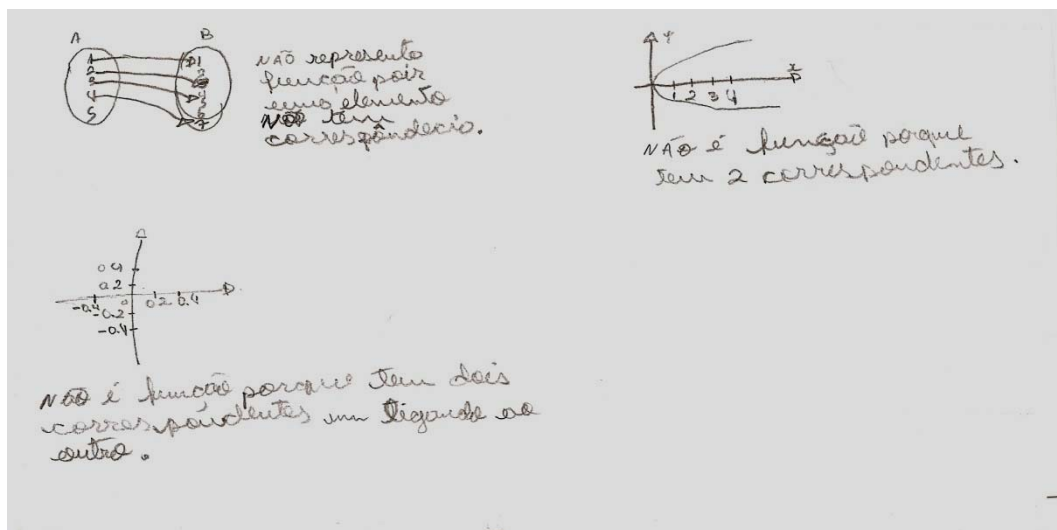 A B
1 1
2 2
3
4 4
5 5
6
7
NÃO represento
função pois
numo elemento
NÃO têm
correspôndecio.
Y
x
1 2 3 4
NÃO é função porque
tem 2 correspondentes.
0.4
0.2
-0.4 0 0.2 0.4
-0.2
-0.4
NÃO é função porque tem dois
correspondentes um ligando ao
outro.